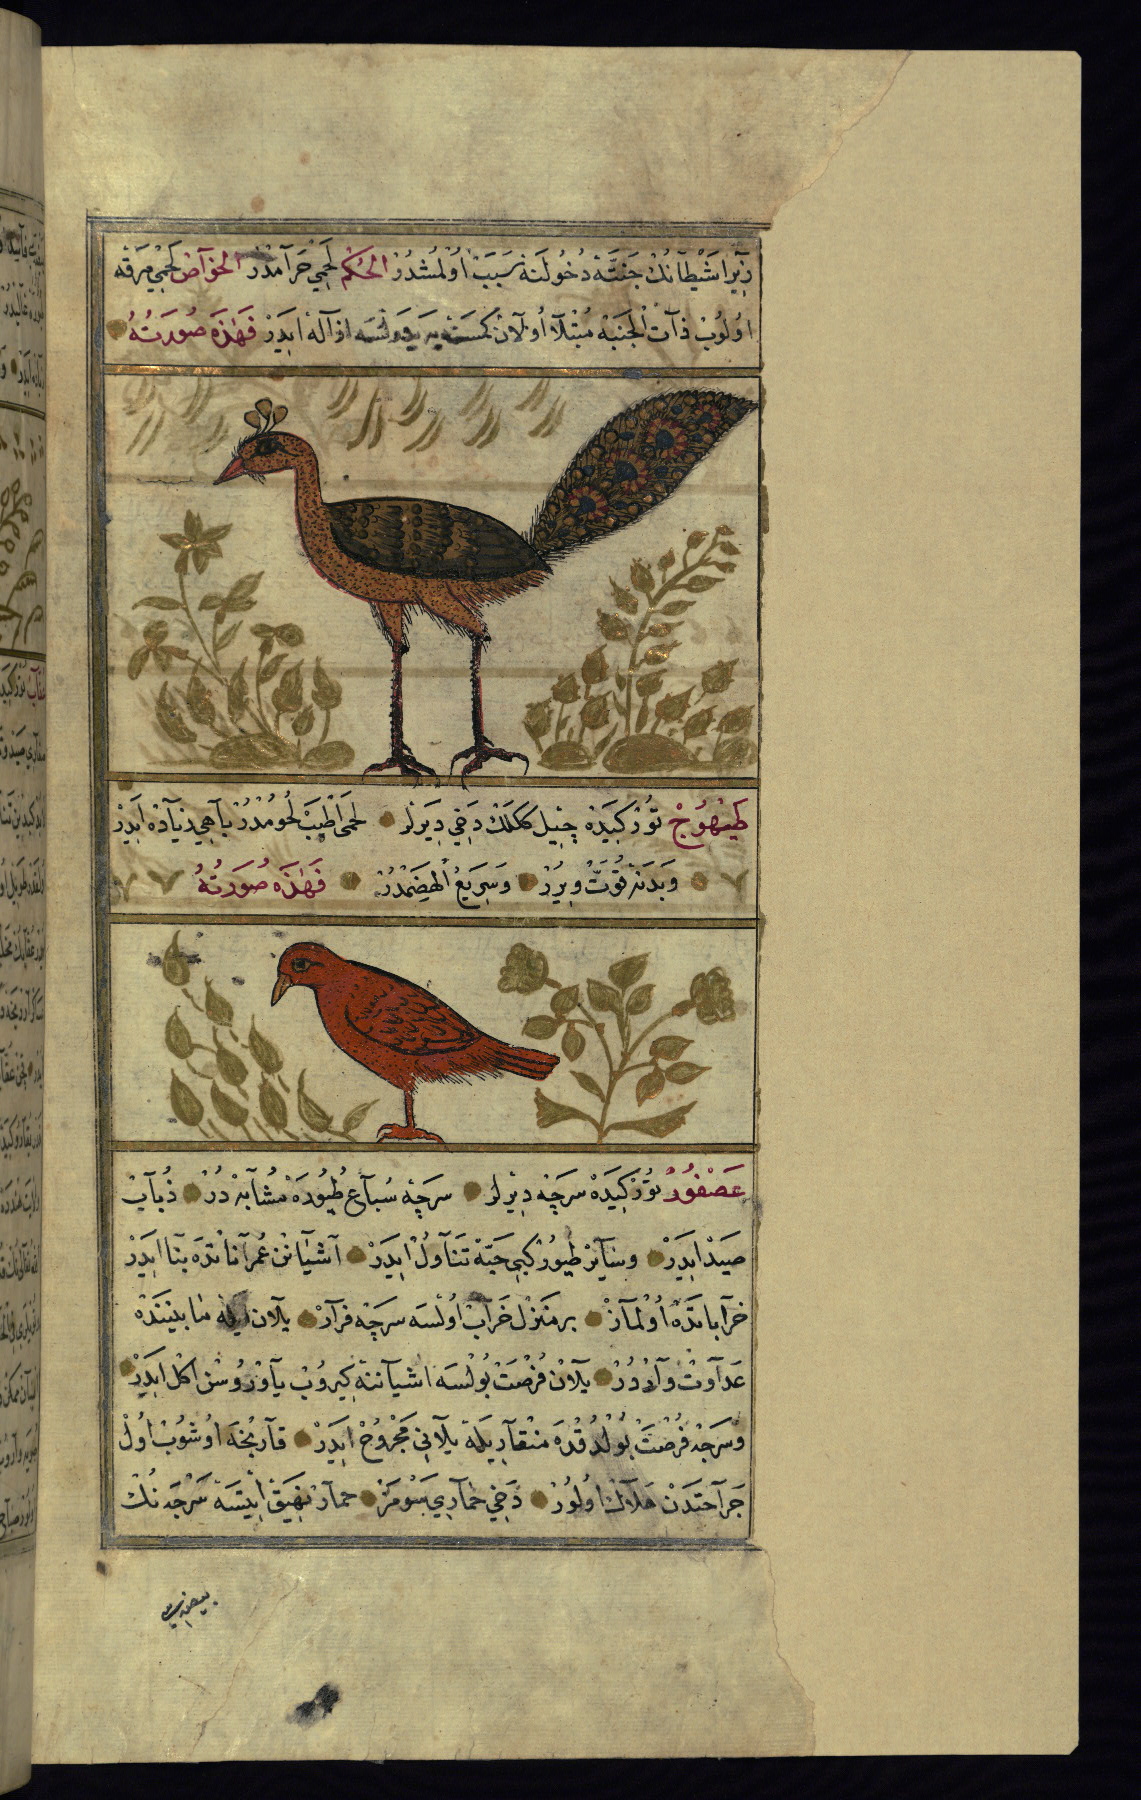 زيرا شيطانك جنته دخولنه سبب اولمشدر الحكم لحمي حرامدر الخواص لحمي مرقه
اولوب ذات الجنبه مبتلا اولان كمسنه يه يدرلسه ازاله ايدر فهذه صورته
طيهوج توركيده چيل ككلك دخي ديرلر لحمي اطيب لحومدر باهي زياده ايدر
وبدنه قوت ويرر وسريع الهضمدر فهذه صورته
عصفور توركيده سرچه ديرلر سرچه سباع طيوره مشابه در ذباب
صيد ايدر وساير طيور كبي حبه تناول ايدر آشيانن عمراناتده بنا ايدر
خراباتده اولماز بر منزل خراب اولسه سرچه فرار يلان ايله مابيننده
عداوت واردر يلان فرصت بولسه اشياننه كيروب ياوروسن اكل ايدر
وسرچه فرصت بولدقده منقاريله يلاني مجروح ايدر قارنجه اوشوب اول
جراحتدن هلاك اولور دخي حماري سومز حمار نهيق ايتسه سرچه نك
بيضه سي